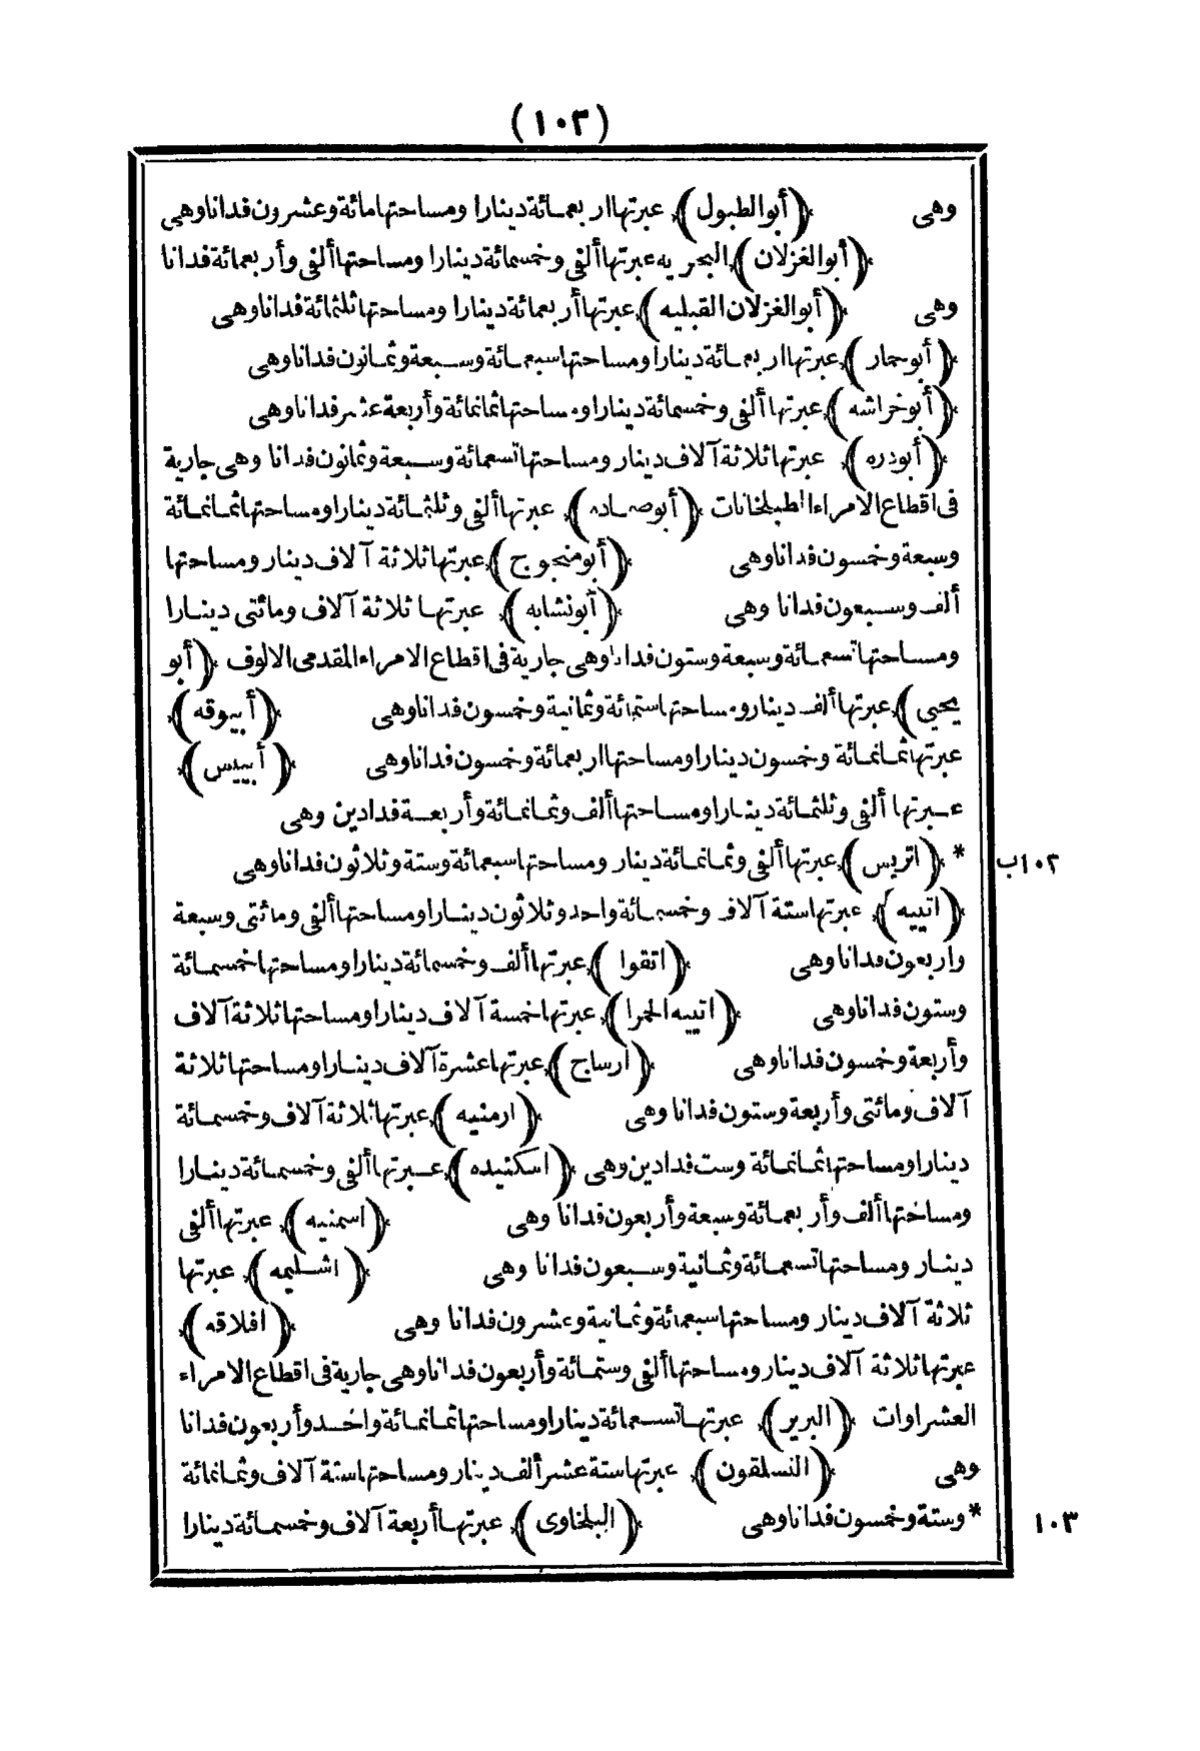 (١٠٣)
وهى (أبو الطبول) عبرتها اربعمائة دينارا ومساحتها مائة وعشرون فدانا وهى
(أبو الغزلان) البحريه عبرتها ألفى وخمسمائة دينارا ومساحتها ألفى وأربعمائة فدانا
وهى (أبو الغزلان القبليه) عبرتها أربعمائة دينارا ومساحتها ثلثمائة فدانا وهى
(أبو حمار) عبرتها اربعمائة دينارا ومساحتها سبعمائة وسبعة وثمانون فدانا وهى
(أبو خراشه) عبرتها ألفى وخمسمائة دينارا ومساحتها ثمانمائة وأربعة عشر فدانا وهى
(أبو دره) عبرتها ثلاثة آلاف دينار ومساحتها تسعمائة وسبعة وثمانون فدانا وهى جارية
فى اقطاع الامراء الطبلخانات (أبو صماده) عبرتها ألفى وثلثمائة دينارا ومساحتها ثمانمائة
وسبعة وخمسون فدانا وهى (أبو منجوج) عبرتها ثلاثة آلاف دينار ومساحتها
ألف وسبعون فدانا وهى (أبو نشابه) عبرتها ثلاثة آلاف ومائتى دينارا
ومساحتها تسعمائة وسبعة وستون فدانا وهى جارية فى اقطاع الامراء المقدمى الالوف (أبو
يحيى) عبرتها ألف دينار ومساحتها ستمائة وثمانية وخمسون فدانا وهى (أبيوقه)
عبرتها ثمانمائة وخمسون دينارا ومساحتها اربعمائة وخمسون فدانا وهى (أبييس)
عبرتها ألفى وثلثمائة دينارا ومساحتها ألف وثمانمائة وأربعة فدادين وهى
* (اتريس) عبرتها ألفى وثمانمائة دينار ومساحتها سبعمائة وستة وثلاثون فدانا وهى ١٠٢ب
(اتييه) عبرتها ستة آلاف وخمسمائة واحد وثلاثون دينارا ومساحتها ألفى ومائتى وسبعة
واربعون فدانا وهى (اتقوا) عبرتها ألف وخمسمائة دينارا ومساحتها خمسمائة
وستون فدانا وهى (اتييه الحمرا) عبرتها خمسة آلاف دينارا ومساحتها ثلاثة آلاف
وأربعة وخمسون فدانا وهى (ارساج) عبرتها عشرة آلاف دينارا ومساحتها ثلاثة
آلاف ومائتى وأربعة وستون فدانا وهى (ارمنيه) عبرتها ثلاثة آلاف وخمسمائة
دينارا ومساحتها ثمانمائة وست فدادين وهى (اسكنيده) عبرتها ألفى وخمسمائة دينارا
ومساحتها ألف وأربعمائة وسبعة وأربعون فدانا وهى (اسمنيه) عبرتها ألفى
دينار ومساحتها تسعمائة وثمانية وسبعون فدانا وهى (اشليمه) عبرتها
ثلاثة آلاف دينار ومساحتها سبعمائة وثمانية وعشرون فدانا وهى (افلاقه)
عبرتها ثلاثة آلاف دينار ومساحتها ألفى وستمائة وأربعون فدانا وهى جارية فى اقطاع الامراء
العشراوات (البرير) عبرتها تسعمائة دينارا ومساحتها ثمانمائة واحد وأربعون فدانا
وهى (النسلقون) عبرتها ستة عشر ألف دينار ومساحتها ستة آلاف وثمانمائة
* وستة وخمسون فدانا وهى (البلخاوى) عبرتها أربعة آلاف وخمسمائة دينارا ١٠٣